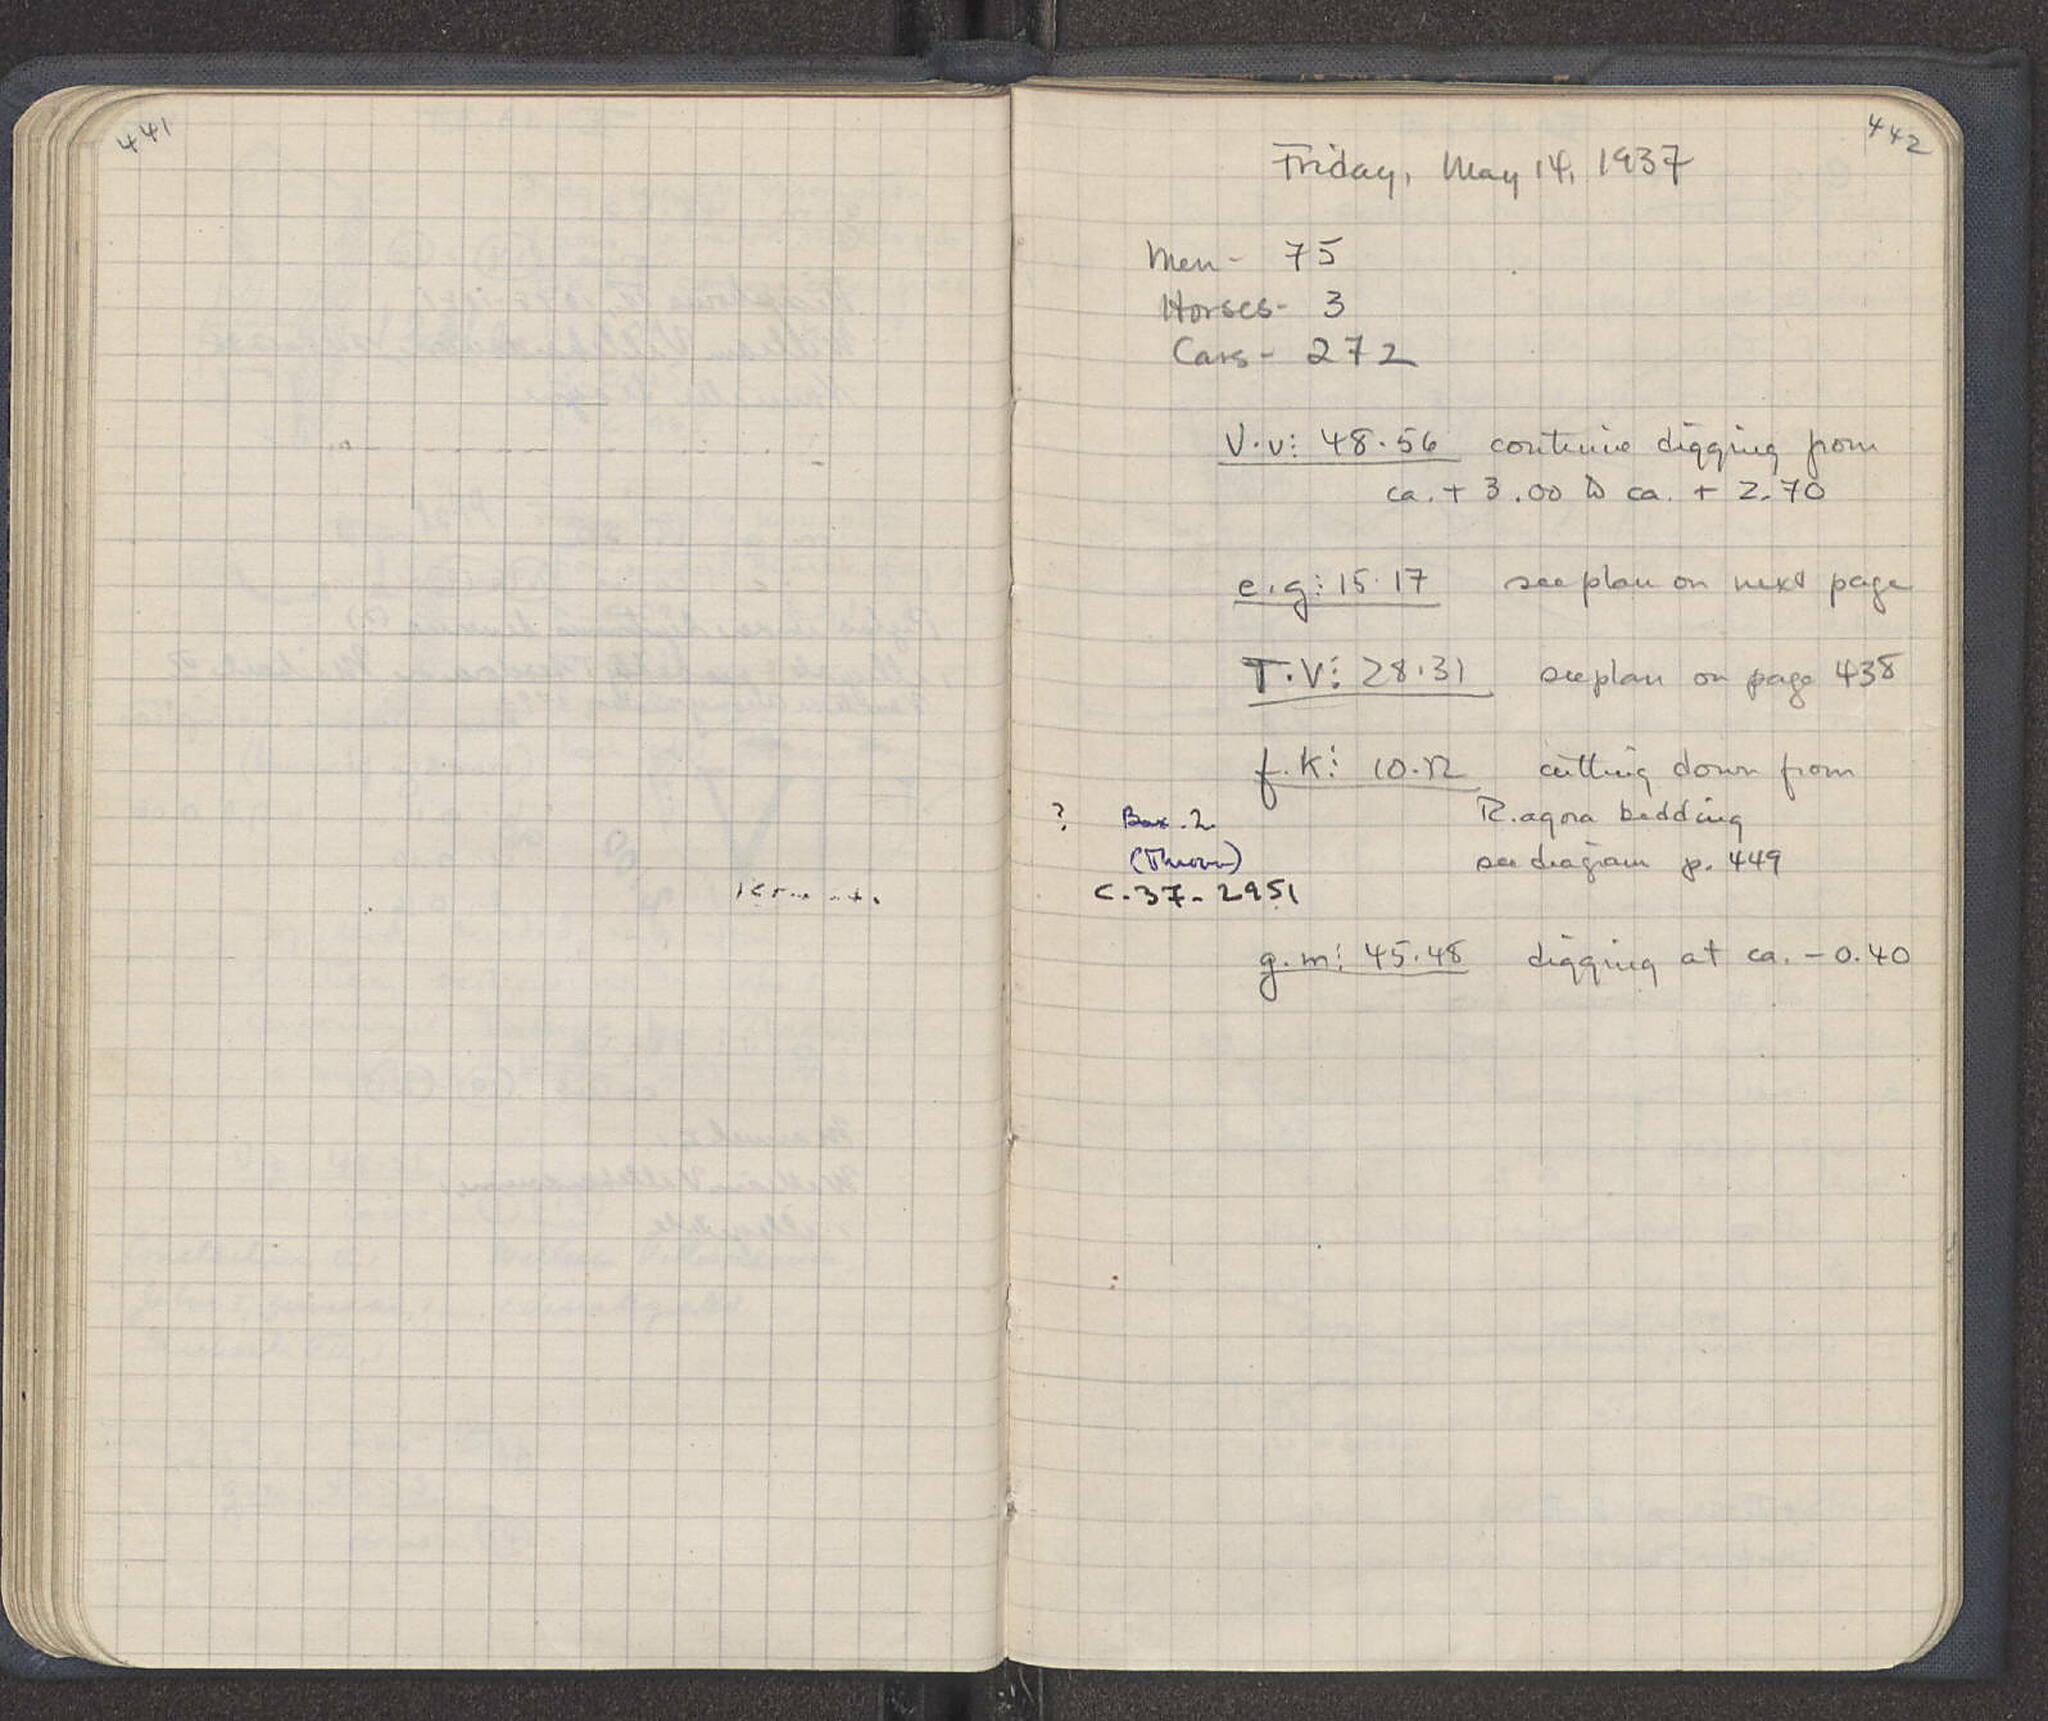 441
442
Friday, May 14, 1937
Men - 75
Horses - 3
Cars - 272
V.v: 48.56 continue digging from
ca. + 3.00 to ca. + 2.70
e.g: 15.17 see plan on next page
T.V: 28.31 see plan on page 438
f.k: 10.12 cutting down from
? Box. 2 R. agora bedding
(Thrown) see diagram p. 449
C.37-2951
g.m: 45.48 digging at ca. - 0.40